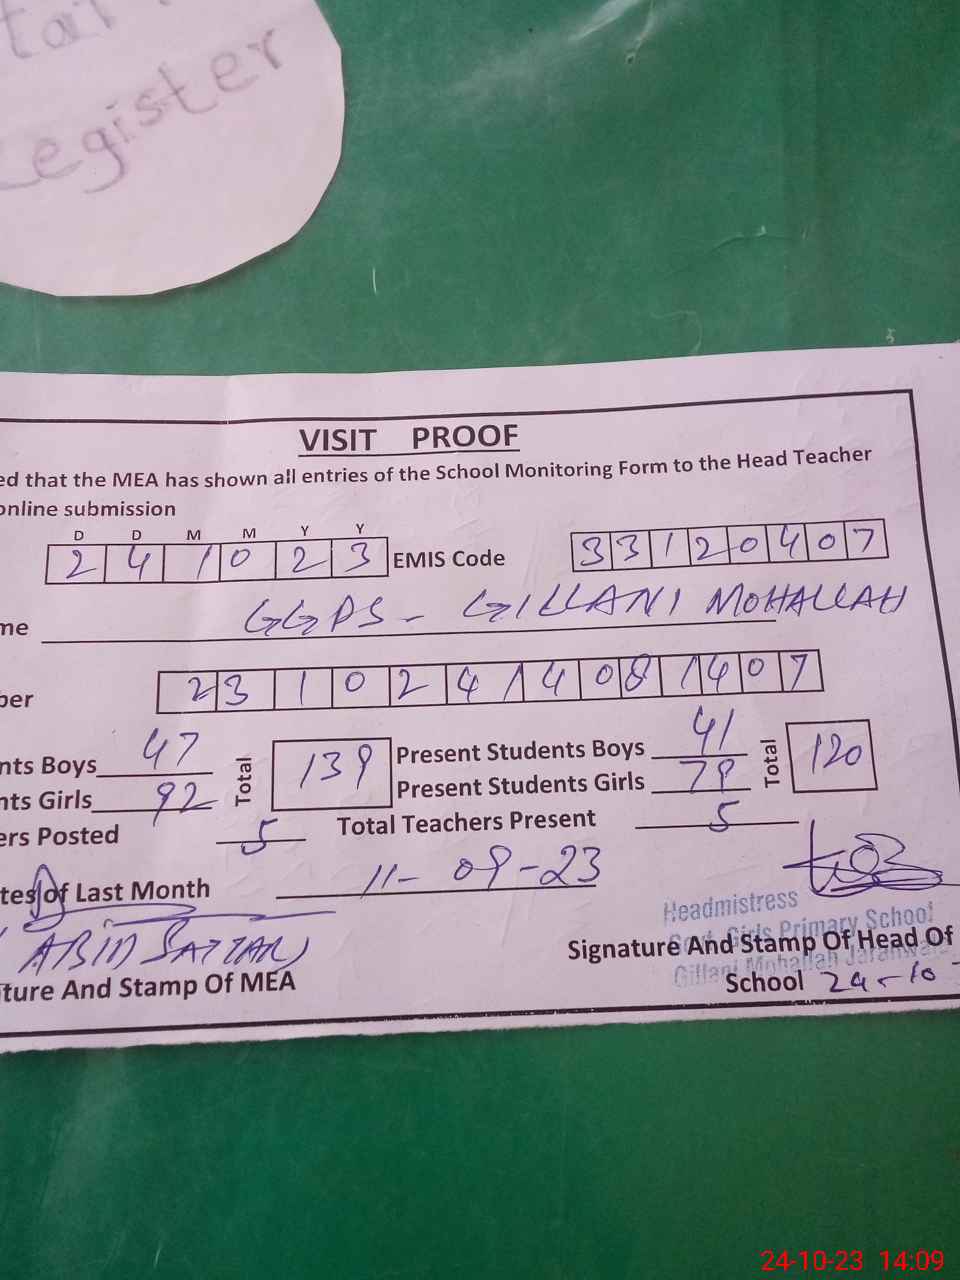 tal
Register
VISIT PROOF
ed that the MEA has shown all entries of the School Monitoring Form to the Head Teacher
online submission
D D M M Y Y
2 4 1 0 2 3 EMIS Code 3 3 1 2 0 4 0 7
me GGPS - GILLANI MOHALLAH
ber 2 3 1 0 2 4 1 4 0 8 1 4 0 7
nts Boys 47 Total 139 Present Students Boys 41 Total 120
nts Girls 92 Present Students Girls 79
ers Posted 5 Total Teachers Present 5
tes of Last Month 11-09-23
Headmistress
Govt. Girls Primary School
Gillani Mohallah Jaranwala
ABID SATTAR
Signature And Stamp Of Head Of
ture And Stamp Of MEA
School 24-10
24-10-23 14:09